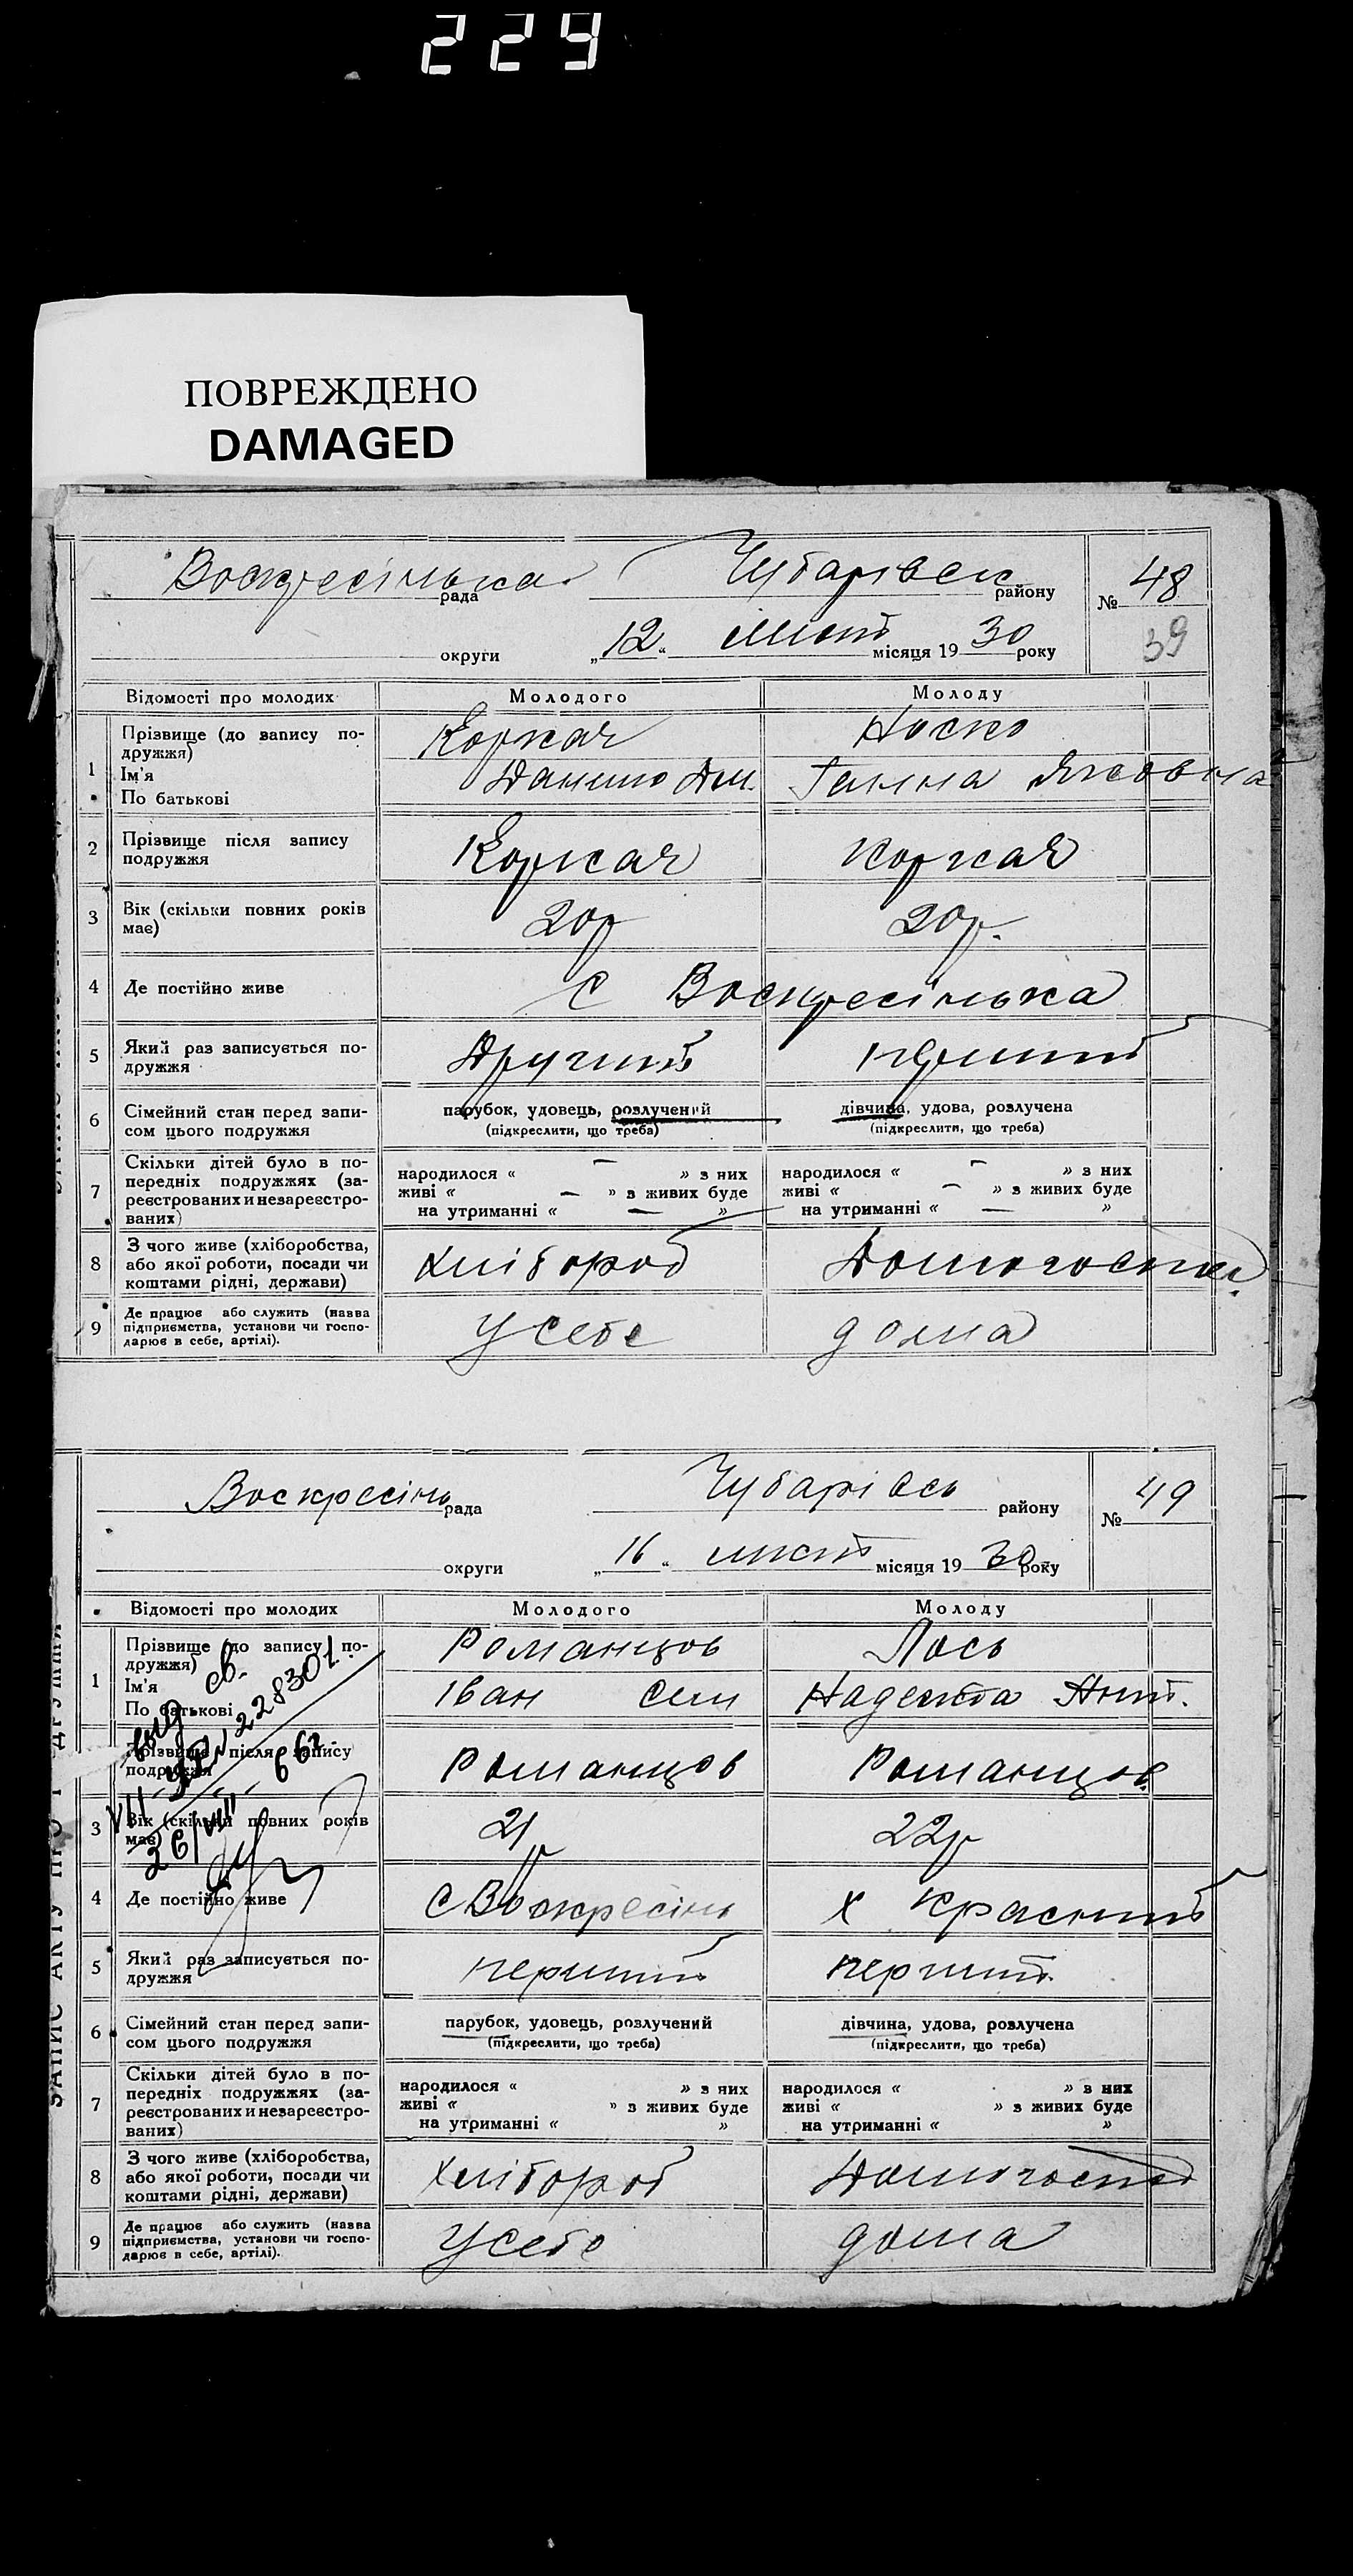 229
ПОВРЕЖДЕНО
DAMAGED
Воскресінька рада Чубарівськ району № 48
округи „12“ лист місяця 1930 року 39
Відомості про молодих Молодого Молоду
1 Прізвище (до запису по-
дружжя) Коркач Носко
Ім'я
По батькові Данило Дм. Ганна Яковівна
2 Прізвище після запису
подружжя Коркач Коркач
3 Вік (скільки повних років
має) 20р 20р.
4 Де постійно живе с Воскресінька
5 Який раз записується по-
дружжя Другий перший
6 Сімейний стан перед запи-
сом цього подружжя парубок, удовець, розлучений дівчина, удова, розлучена
(підкреслити, що треба) (підкреслити, що треба)
7 Скільки дітей було в по-
передніх подружжях (за-
реєстрованих и незареєстро-
ваних)
народилося « — » з них народилося « — » з них
живі « — » з живих буде живі « — » з живих буде
на утриманні « — » на утриманні « — »
8 З чого живе (хліборобства,
або якої роботи, посади чи
коштами рідні, держави) Хлібороб Домогоспод.
9 Де працює або служить (назва
підприємства, установи чи госпо-
дарює в себе, артілі). У себе дома
Воскресінь рада Чубарівсь району № 49
округи „16“ лист місяця 1930 року
Відомості про молодих Молодого Молоду
1 Прізвище (до запису по-
дружжя) Романцов Лось
Ім'я
По батькові Іван Сем Надежта Ант.
Прізвище після запису
подружжя Романцов Романцов
3 Вік (скільки повних років
має) 21р 22р
4 Де постійно живе с Воскресінь х Красний
5 Який раз записується по-
дружжя перший перший
6 Сімейний стан перед запи-
сом цього подружжя парубок, удовець, розлучений дівчина, удова, розлучена
(підкреслити, що треба) (підкреслити, що треба)
7 Скільки дітей було в по-
передніх подружжях (за-
реєстрованих и незареєстро-
ваних)
народилося « » з них народилося « » з них
живі « » з живих буде живі « » з живих буде
на утриманні « » на утриманні « »
8 З чого живе (хліборобства,
або якої роботи, посади чи
коштами рідні, держави) Хлібороб Домогоспод
9 Де працює або служить (назва
підприємства, установи чи госпо-
дарює в себе, артілі). У себе дома